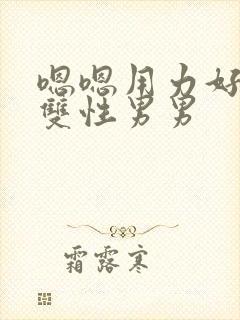 嗯嗯用力好
雙性男男
霜露寒